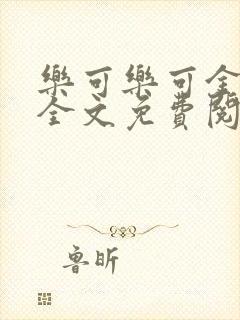 樂可樂可全
全文免費閱
魯昕